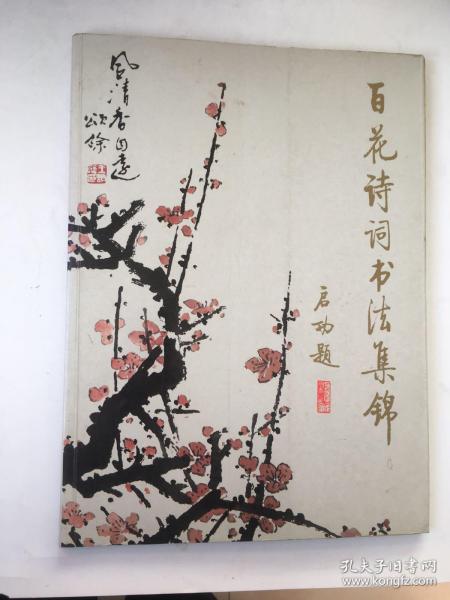 百花诗词书法集锦
启功题
风清香自远
颂馀
孔夫子旧书网
www.kongfz.com